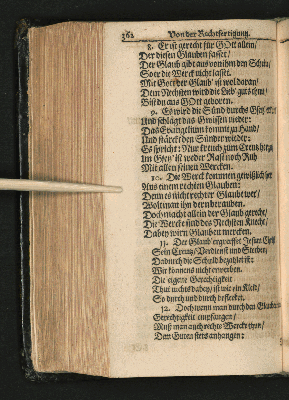 362 Von der Rechtfertigung.
8. Er ist gerecht für GOtt allein/
Der diesen Glauben fasset/
Der Glaub gibt aus von ihm den Schein/
So er die Werck nicht lasset.
Mit Gott der Glaub' ist wol daran/
Dem Nechsten wird die Lieb' guts thun/
Bist du aus GOtt geboren.
9. Es wird die Sünd durchs Gsetz
Und schlägt das Gwissen nieder:
Das Evangelium kommt zu Hand/
Und stärckt den Sünder wieder:
Es spricht: Nur kreuch zum Creutz her
Im Gsetz' ist weder Rast noch Ruh
Mit allen seinen Wercken.
10. Die Werck kommen gewißlich her
Aus einem rechten Glauben:
Denn es nicht rechter Glaube wer/
Wolt man ihn dern berauben.
Doch macht allein der Glaub gerecht/
Die Wercke sind des Nechsten Knecht/
Dabey wirn Glauben mercken.
11. Der Glaub' ergreiffet Jesum Christ
Sein Creutz/ Verdienst und Sterben/
Dadurch die Schuld bezahlet ist:
Wir könnens nicht erwerben.
Die eigne Gerechtigkeit
Thut nichts dabey/ ist wie ein Kleit/
So durch und durch beflecket.
12. Doch wann man durch den Glauben
Gerechtigkeit empfangen/
Muß man auch rechte Wercke thun/
Dem Guten stets anhangen: